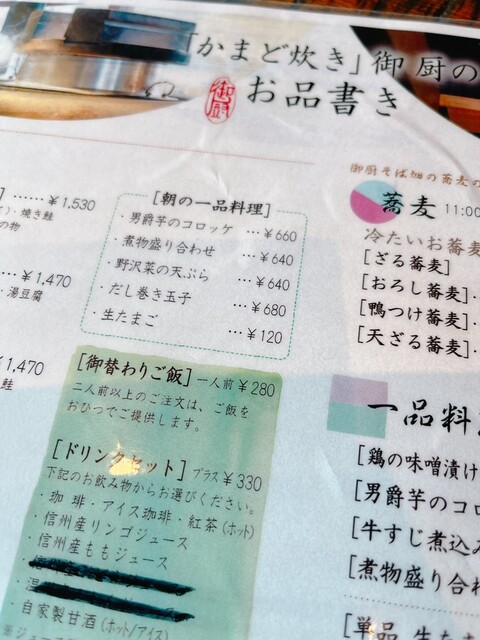 「かまど炊き」御厨の
御厨
お品書き
] …… ¥1,530
・焼き鮭
の物
¥1,470
・湯豆腐
¥1,470
鮭
[朝の一品料理]
・男爵芋のコロッケ …¥660
・煮物盛り合わせ …¥640
・野沢菜の天ぷら …¥640
・だし巻き玉子 …¥680
・生たまご …¥120
[御替わりご飯] 一人前¥280
二人前以上のご注文は、ご飯を
おひつでご提供します。
[ドリンクセット] プラス¥330
下記のお飲み物からお選びください。
・珈琲・アイス珈琲・紅茶(ホット)
・信州産リンゴジュース
・信州産ももジュース
・自家製甘酒(ホット/アイス)
御厨そば畑の蕎麦の
蕎麦 11:00
冷たいお蕎麦
[ざる蕎麦]
[おろし蕎麦]
[鴨つけ蕎麦]
[天ざる蕎麦]
一品料
[鶏の味噌漬け
[男爵芋のコロ
[牛すじ煮込み
[煮物盛り合わ
[単品 生たま